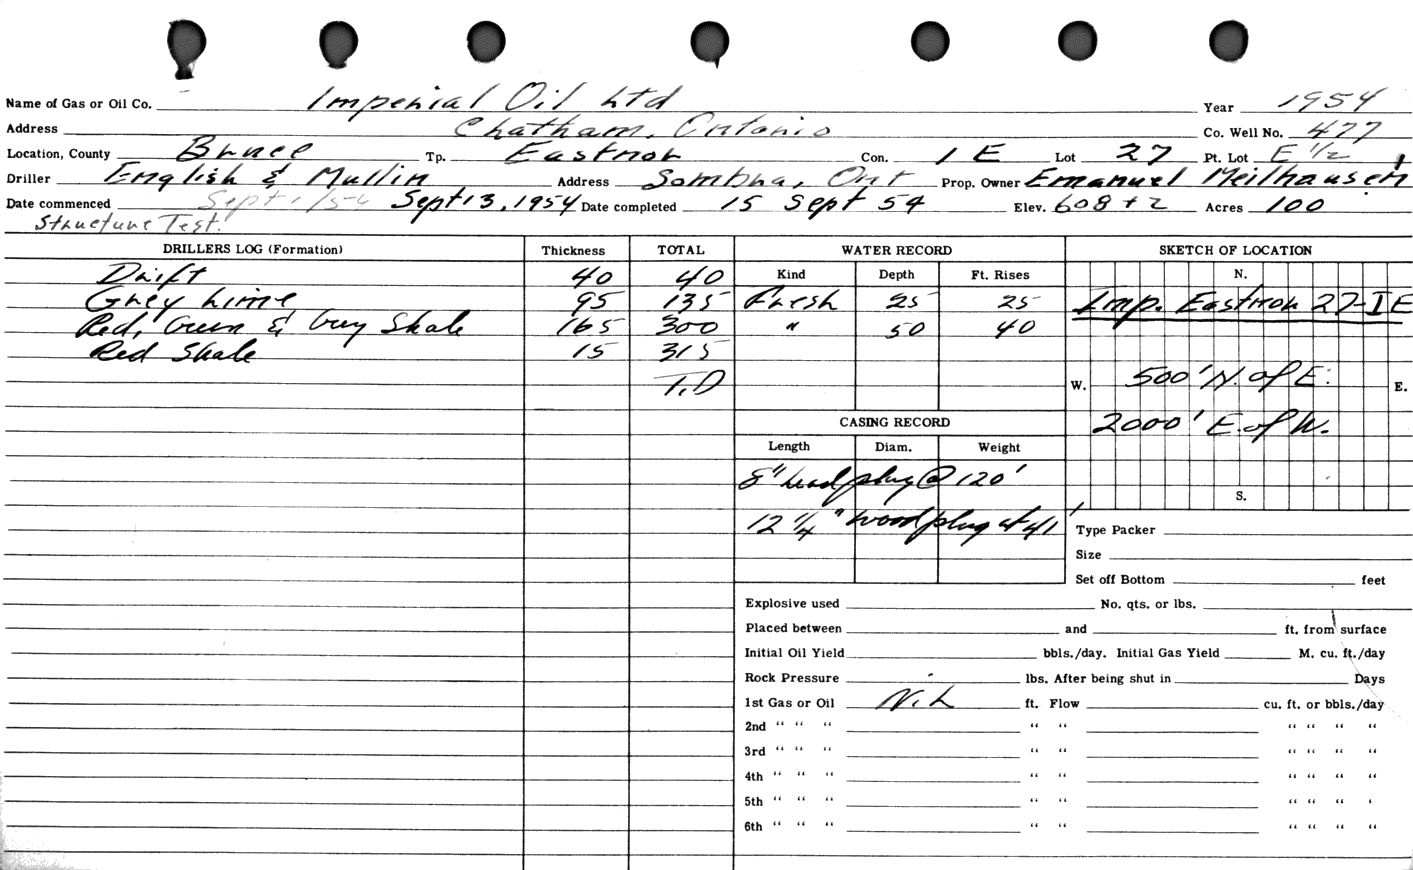 Name of Gas or Oil Co. Imperial Oil Ltd Year 1954
Address Chatham, Ontario Co. Well No. 477
Location, County Bruce Tp. Eastnor Con. 1 E Lot 27 Pt. Lot E 1/2
Driller English & Mullin Address Sombra, Ont Prop. Owner Emanuel Meilhausen
Date commenced Sept 1/54 Sept 13, 1954 Date completed 15 Sept 54 Elev. 608 + 2 Acres 100
Structure Test.
DRILLERS LOG (Formation) Thickness TOTAL
Drift 40 40
Grey Lime 95 135
Red, Green & Grey Shale 165 300
Red Shale 15 315
T.D
WATER RECORD
Kind Depth Ft. Rises
Fresh 25 25
" 50 40
CASING RECORD
Length Diam. Weight
8" lead plug @ 120'
12 1/4" wood plug at 41'
SKETCH OF LOCATION
N.
Imp. Eastnor 27-I E
W. 500' N. of E. E.
2000' E. of W.
S.
Type Packer
Size
Set off Bottom feet
Explosive used No. qts. or lbs.
Placed between and ft. from surface
Initial Oil Yield bbls./day. Initial Gas Yield M. cu. ft./day
Rock Pressure lbs. After being shut in Days
1st Gas or Oil Nil ft. Flow cu. ft. or bbls./day
2nd " " " " " " " " "
3rd " " " " " " " " "
4th " " " " " " " " "
5th " " " " " " " " '
6th " " " " " " " " "